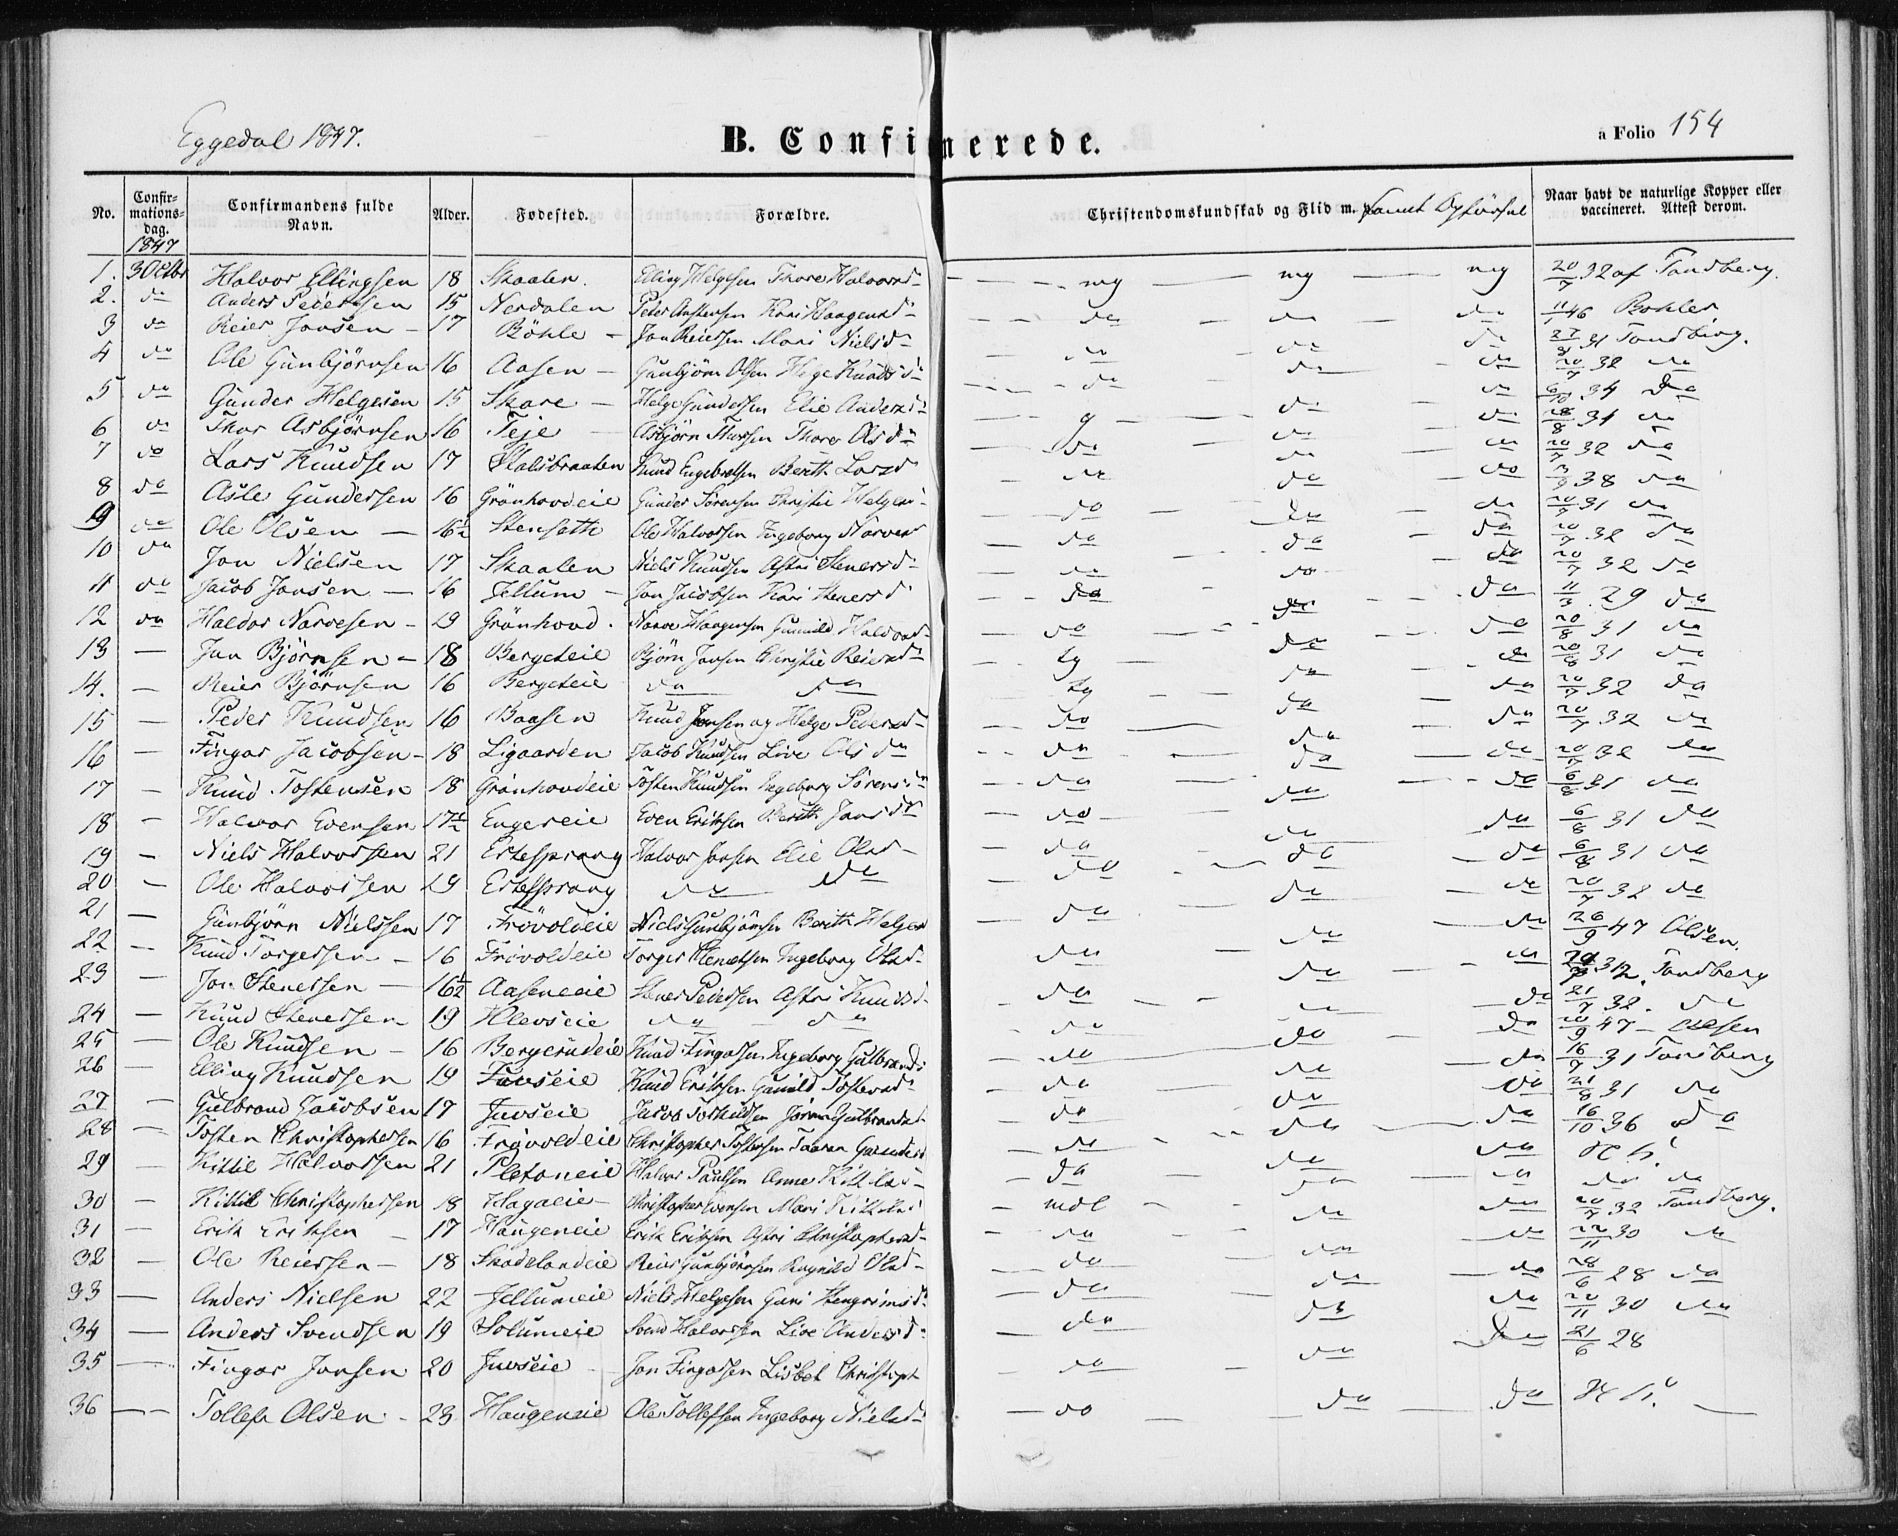 Eggedal 1847.
B. Confirmerede.
a Folio 154
No. Confirmations-dag. Confirmandens fulde Navn. Alder. Fødested. Forældre. Christendomskundskab og Flid m. samt Opførsel Naar havt de naturlige Kopper eller vaccineret. Attest derom.
1847
1. 3 Octbr Halvor Ellingsen 18 Skaalen. Elling Helgesen Thore Halvorsd mg mg mg 20/7 32 af Tandberg.
2. do Anders Pedersen 15 Nerdalen Peder Kari Haagensd do do do 11/1 46 Bohler
3 do Reier Jonsen - 17 Böhle - Jon Reiersen Mari Nielsd do do do 31 Tandberg.
4 do Ole Gunbjörnsen 16 Aasen - Gunbjörn Olsen Helge Knudsd do do do 20/7 32 do
5 do Gunder Helgesen 15 Skare - Helge Gundersen Elie Andersd do do do 34 do
6 do Thor Asbjörnsen 16 Teje Asbjörn Thorsen Thore Olsd g do do 28/8 31 do
7 do Lars Knudsen 17 Halsbraaten Knud Engebretsen Berith Larsd do do do 20/7 32 do
8 do Asle Gundersen 16 Grönhovdeie Gunder Sörensen Christie Helges do do do 38 do
9 do Ole Olsen - 16½ Stenseth Ole Halvorsen Ingeborg Narves do do do 31 do
10 do Jon Nielsen 17 Skaalen Niels Knudsen Astri Stenersd do do do 20/7 32 do
11 do Jacob Jonsen - 16 Jellum - Jon Jacobsen Kari Stenersd do do do 20/7 32 do
12 do Haldor Narvesen - 19 Grönhovd. Narve Haagensen Gunnild Haldorsd do do do 11/3 29 do
13 - Jon Björnsen - 18 Bergeteie Björn Jonsen Christie Reiersd tg do do 20/8 31 do
14. - Reier Björnsen 16 Bergeteie do do tg do do 20/8 31 do
15 - Peder Knudsen 16 Baasen Knud Jonsen og Helge Pedersd do do do 20/7 32 do
16 - Fingar Jacobsen - 18 Ligaarden Jacob Knudsen Live Olsd do do do 20/7 32 do
17 - Knud Tostensen 18 Grönhovdeie Tosten Knudsen Ingeborg Sörens do do do 20/7 32 do
18 - Halvor Evensen 17½ Engereie Even Eriksen Berith Jonsd do do do 6/8 31 do
19 - Niels Halvorsen 21 Ertesprang Halvor Jonsen Elie Olsd do do do 6/8 31 do
20 - Ole Halvorsen 19 Ertesprang do do do do do 6/8 31 do
21 - Gunbjörn Nielssen 17 Frövoldeie Niels Gunbjörnsen Berith Helges do do do 20/7 32 do
22 - Knud Torgersen - 16 Frövoldeie Torger Ingeborg Olsd do do do 26/9 47 Olsen.
23 - Jon Stenersen - 16½ Aaseneie Stener Pedersen Astri Knudsd do do do 32. Tandberg
24 - Knud Stenersen 19 Klevseie do - do do do do 21/7 32. do
25 - Ole Knudsen - 16 Bergerudeie Knud Fingarsen Ingeborg Gulbrandsd do do do 20/9 47 - Olsen
26 - Elling Knudsen 19 Juvseie Knud Eriksen Gunild Tostensd do do do 16/7 31 Tandberg
27 - Gulbrand Jacobsen 17 Juvseie Jacob Torkildsen Jöran Gulbrandsd. do do do 21/8 31 do
28 - Tosten Christophersen 16 Frövoldeie Christopher Tostensen Joran Gundersd do do do 16/10 36 do
29 - Kittil Halvorsen 21 Pletaneie Halvor Paulsen Anne Kittilsd - do do do
30 - Kittil Christophersen 18 Hagaeie - Christopher Evensen Mari Kittilsd mdl do do do do
31 - Erik Eriksen - 17 Haugeneie Erik Eriksen Astri Christophersd - do do do 20/7 32 Tandberg.
32 - Ole Reiersen - 18 Skadelandeie Reier Gunbjörnsen Ragnild Olsd - do do do 22/11 30 do
33 - Anders Nielsen 22 Jellumeie Niels Helgesen Guri Stengrimsd do do do 28/6 28 do
34 - Anders Svendsen 19 Solumeie Svend Halvorsen Live Andersd do do do 20/11 30 do
35 - Fingar Jonsen 20 Juvseie - Jon Fingarsen Lisbet Christoph do do do 21/6 28
36 - Tollef Olsen - 23 Haugeneie Ole Tollefsen Ingeborg Nielsd do do do